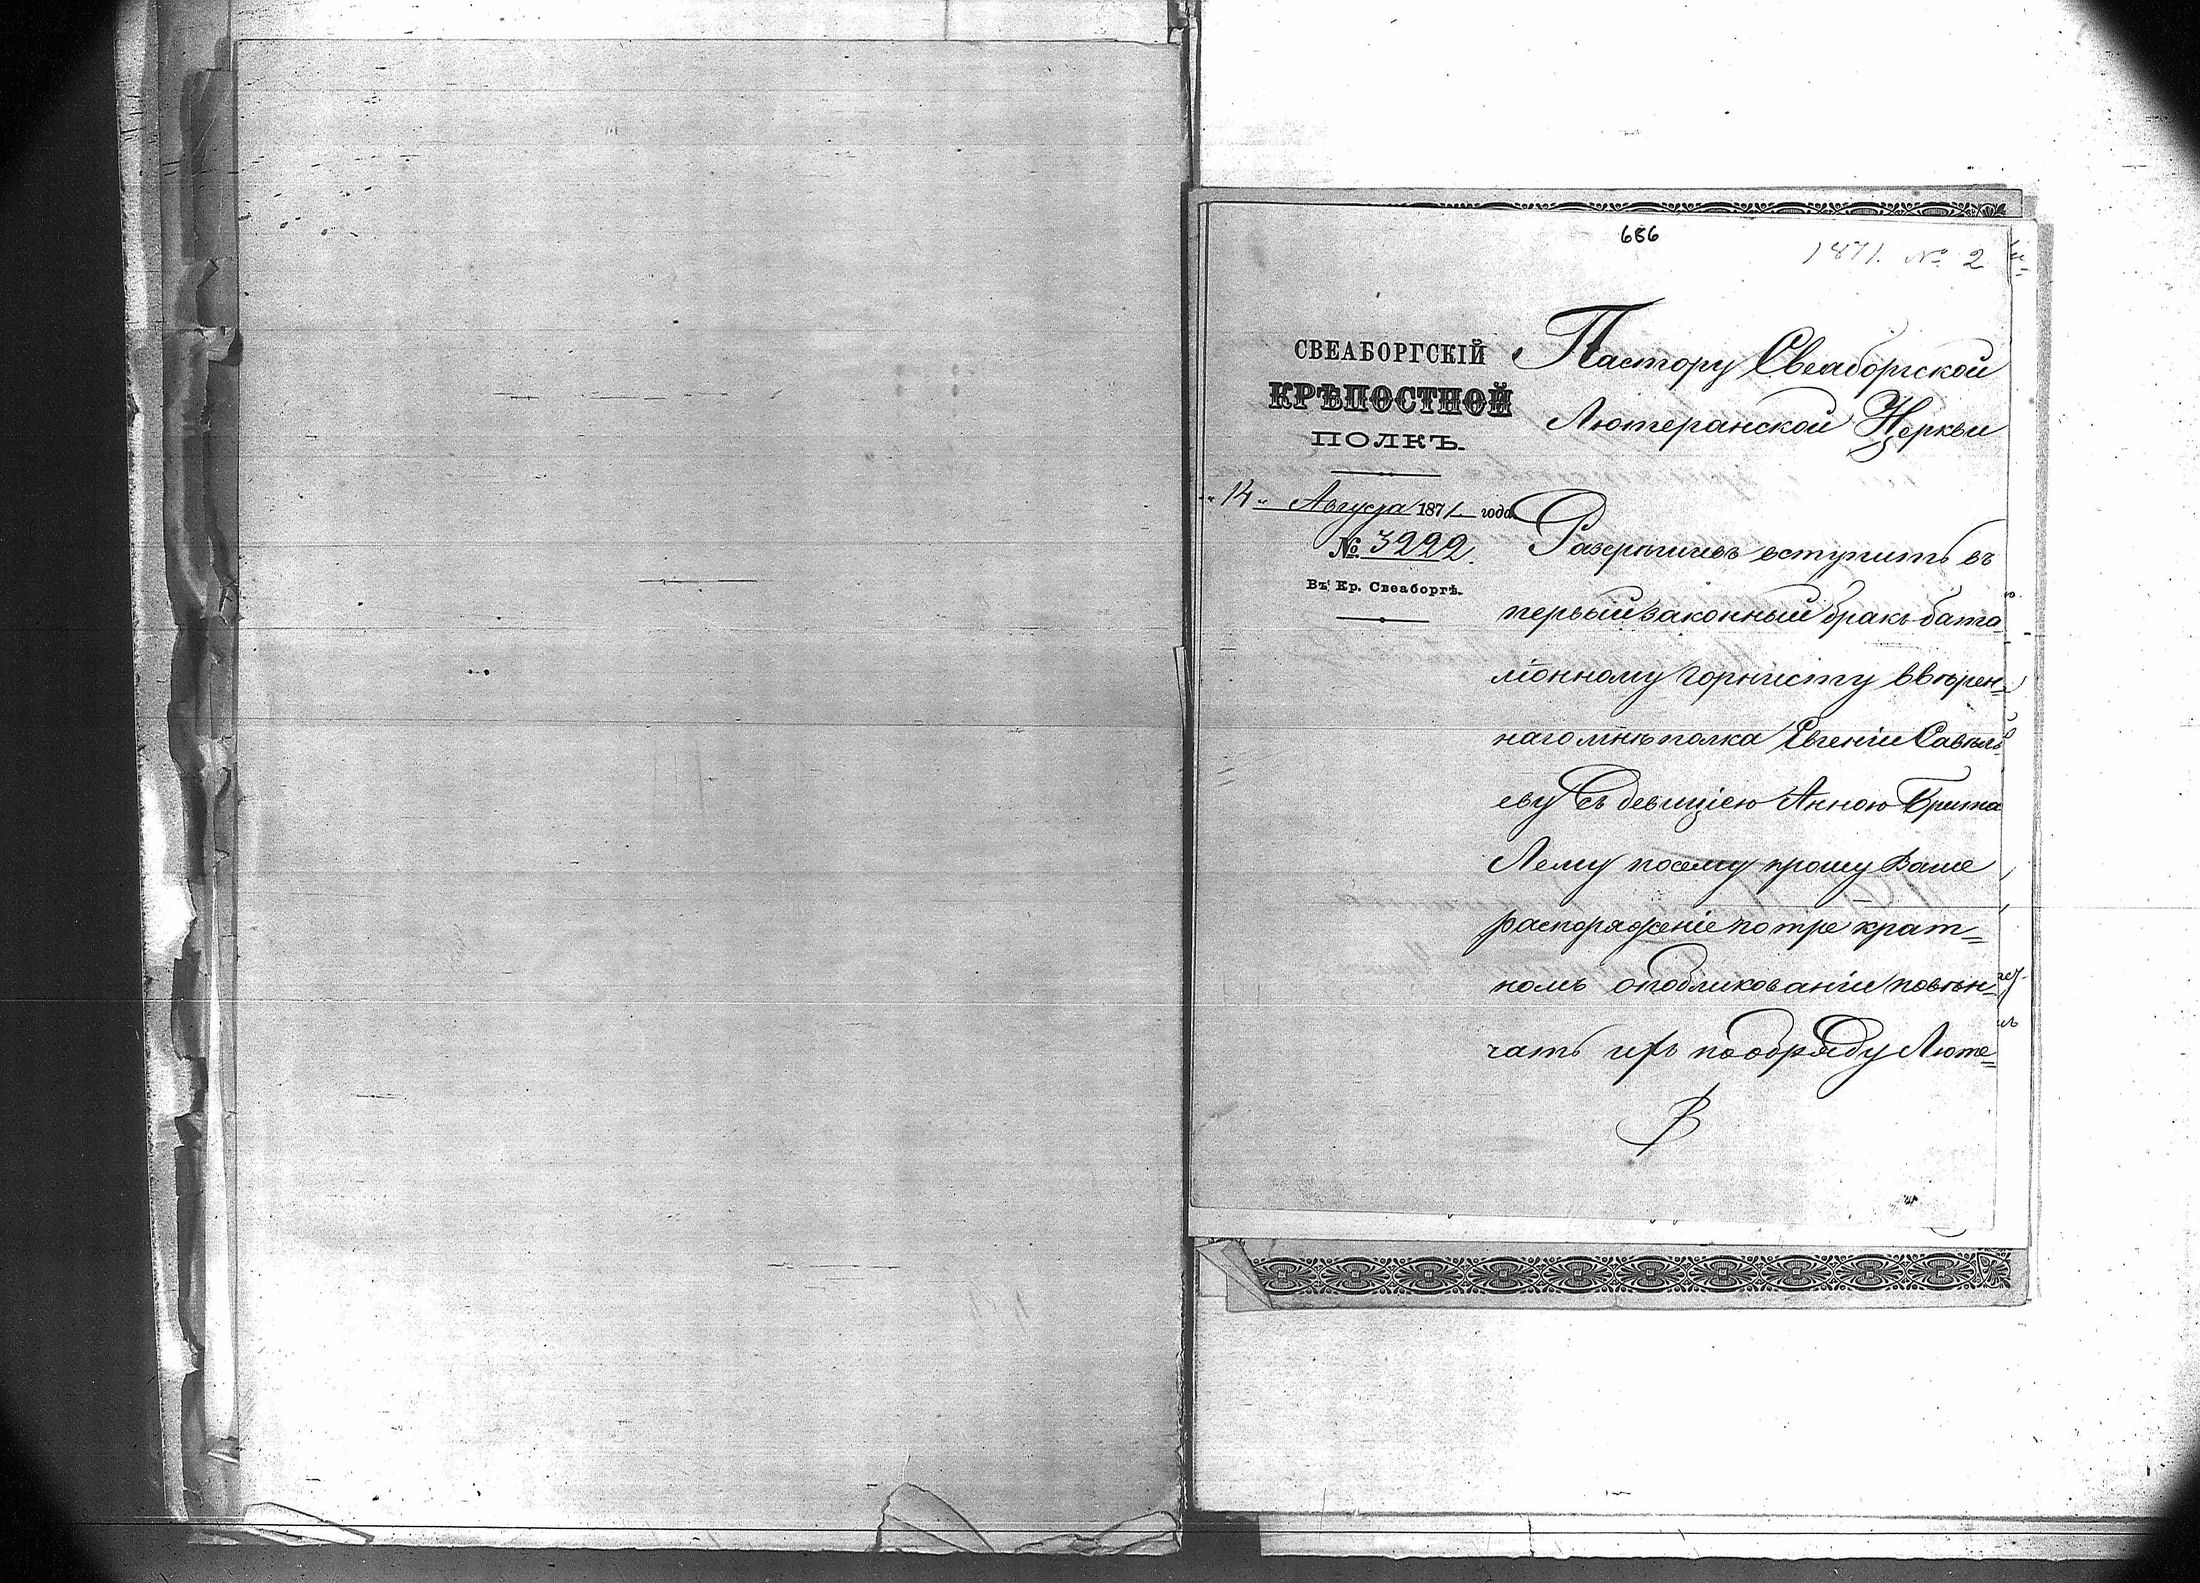 686
1871. № 2
СВЕАБОРГСКІЙ
КРѢПОСТНОЙ
ПОЛКЪ.
"14" Августа 1871 года
№ 3222.
Въ Кр. Свеаборгѣ.
Пастору Свеаборгской
Лютеранской Церкви
Разрѣшивъ вступить въ
первый законный бракъ бата
ліонному горнисту ввѣрен=
наго мнѣ полка Евгенію Савель
еву съ девицею Анною Брита
Лему посему прошу Ваше
распоряженіе по тре крат=
номъ опобликованіи повѣн=
чать ихъ по обряду Люте=